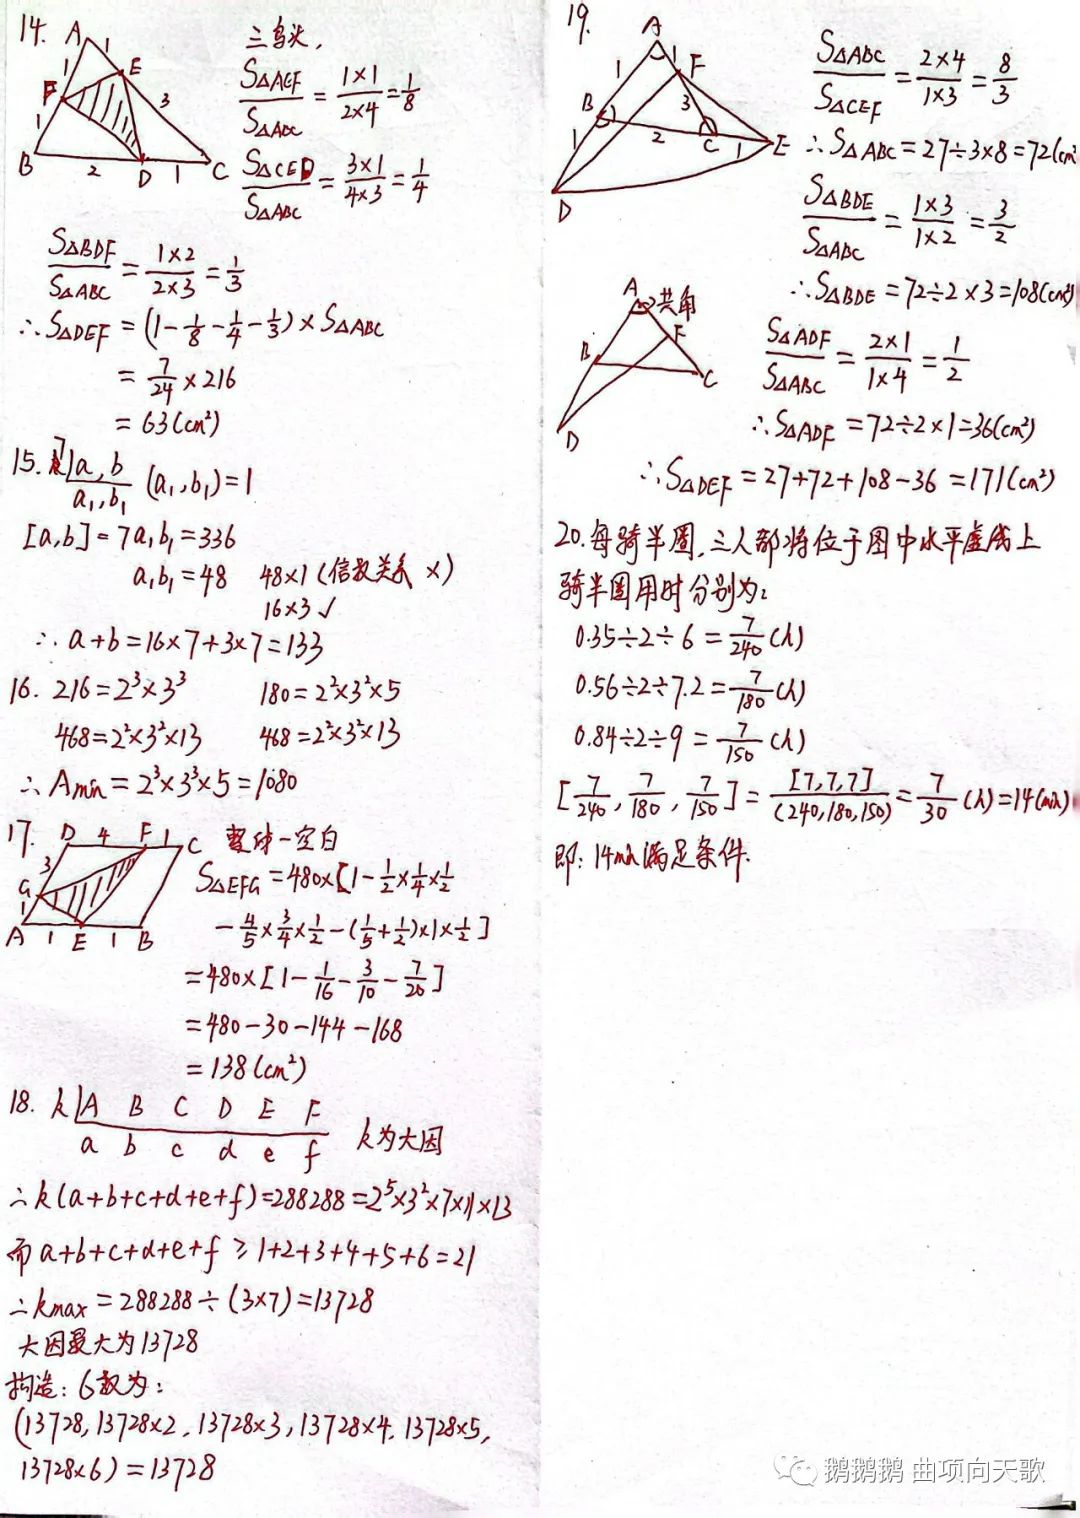 14.
A
1
E
1
F
3
1
B
2
D
1
C
三鸟头,
S△AEF/S△ABC = 1×1/2×4 = 1/8
S△CED/S△ABC = 3×1/4×3 = 1/4
S△BDF/S△ABC = 1×2/2×3 = 1/3
∴S△DEF = (1-1/8-1/4-1/3)×S△ABC
= 7/24×216
= 63(cm²)
15. 7|a,b (a₁,b₁)=1
a₁,b₁
[a,b]=7a₁b₁=336
a₁b₁=48 48×1(倍数关系 ×)
16×3√
∴ a+b=16×7+3×7=133
16. 216=2³×3³ 180=2²×3²×5
468=2²×3²×13 468=2²×3²×13
∴Amin=2³×3³×5=1080
17.
D 4 F 1 C
3
G
1
A 1 E 1 B
整体-空白
S△EFG=480×[1-1/2×1/4×1/2
-4/5×3/4×1/2-(1/5+1/2)×1×1/2]
=480×[1-1/16-3/10-7/20]
=480-30-144-168
=138(cm²)
18. k|A B C D E F
a b c d e f k为大因
∴k(a+b+c+d+e+f)=288288=2⁵×3²×7×11×13
而a+b+c+d+e+f≥1+2+3+4+5+6=21
∴kmax=288288÷(3×7)=13728
大因最大为13728
构造:6数为:
(13728,13728×2,13728×3,13728×4,13728×5,
13728×6)=13728
19.
A
1
1
F
B
3
1
2
C
1
E
D
S△ABC/S△CEF = 2×4/1×3 = 8/3
∴S△ABC=27÷3×8=72(cm²
S△BDE/S△ABC = 1×3/1×2 = 3/2
∴S△BDE=72÷2×3=108(cm²)
A
共角
F
B
C
D
S△ADF/S△ABC = 2×1/1×4 = 1/2
∴S△ADF=72÷2×1=36(cm²)
∴S△DEF=27+72+108-36=171(cm²)
20.每骑半圈,三人都将位于图中水平虚线上
骑半圈用时分别为:
0.35÷2÷6=7/240(h)
0.56÷2÷7.2=7/180(h)
0.84÷2÷9=7/150(h)
[7/240,7/180,7/150]=[7,7,7]/(240,180,150)=7/30(h)=14(min)
即:14min满足条件.
鹅鹅鹅 曲项向天歌